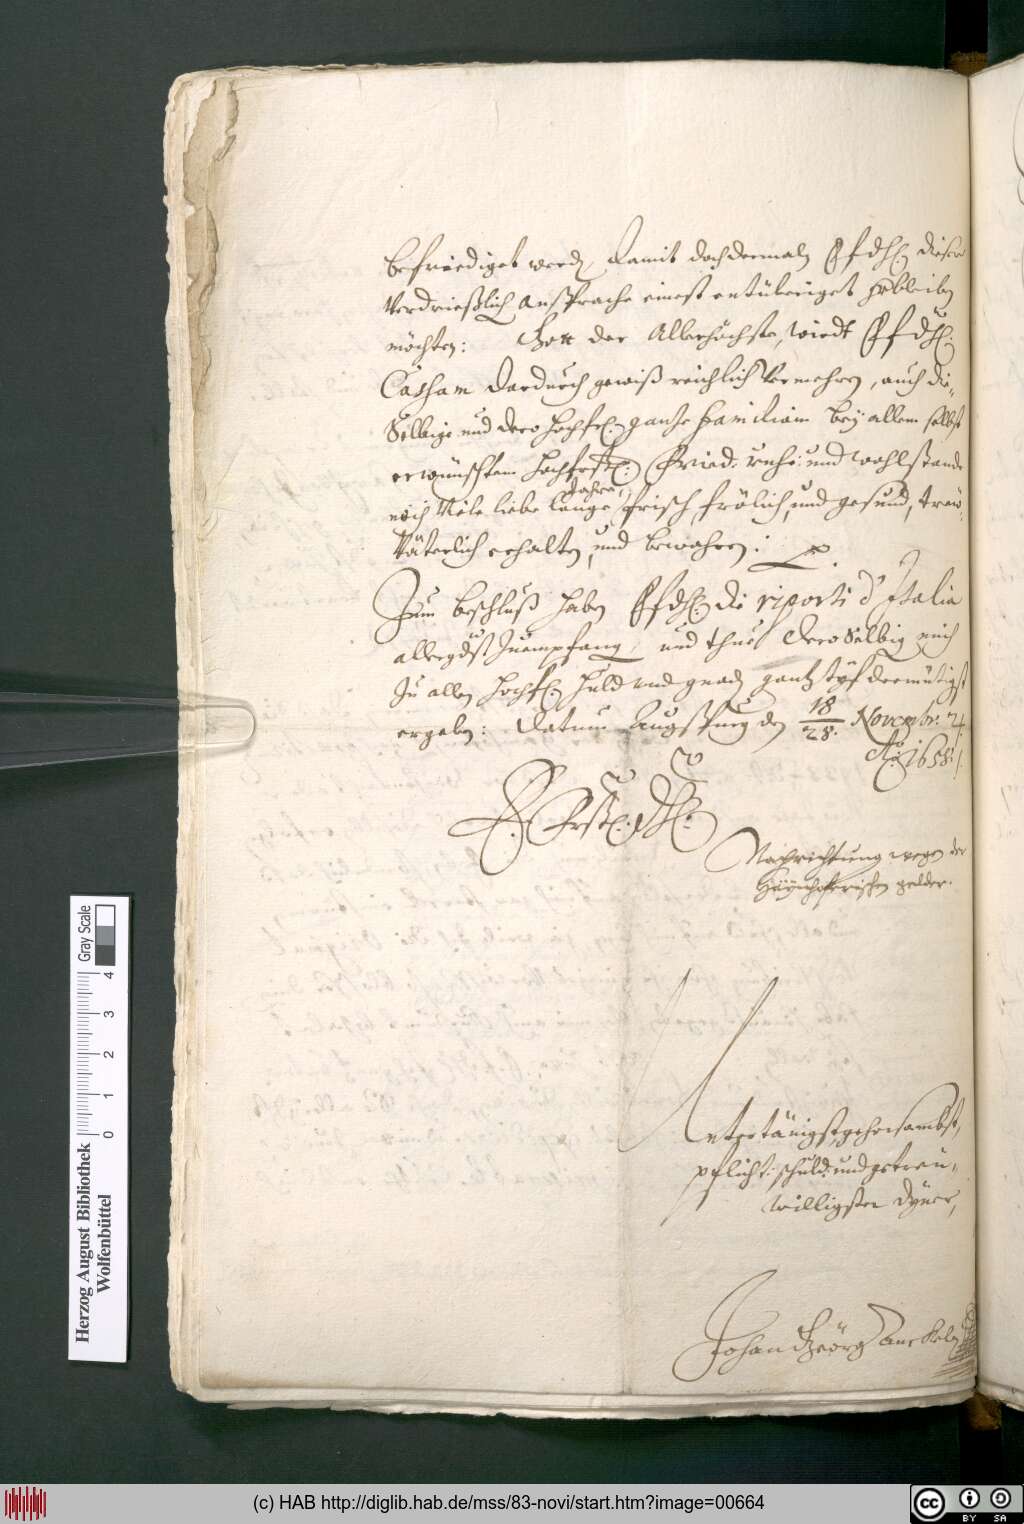 befriediget werd, damit doch dermaln Ffdh: diserr
verdrießlich ansprache einest entübriget sebleiben
möchten: Gott der Allerhöchste, wirdt Ffdh:
Casham dardurch gewiß reichlich vermehren, auch die-
Selbige und dero hochfr: gantze familiam bey allem selbst
erwünschtem hochfrstl: Fried: ruhe: und wohlstande
noch Vile liebe lange Jahre, frisch, frölich, und gesund, treu-
Väterlich erhalten, und bewahren:
Zum beschluß haben Ffdh: die riporti d'Italia
allergdst Zuempfang, und thue Dero Selbig mich
Zu allen hochf: huld und gnad gantz tyf demütigst
ergeben: Datum Augspurg den 18/28. Novembr: 4.
Ao: 1658.
E. Frstl: dh:
Nachrichtung wegen der
Haynhoferischen gelder.
Untertänigst, gehorsambst,
pflicht: schuld: und getreu-
willigster dyner,
Johan Georg Anckel
Herzog August Bibliothek
Wolfenbüttel
0 1 2 3 4
Gray Scale
(c) HAB http://diglib.hab.de/mss/83-novi/start.htm?image=00664
cc BY SA